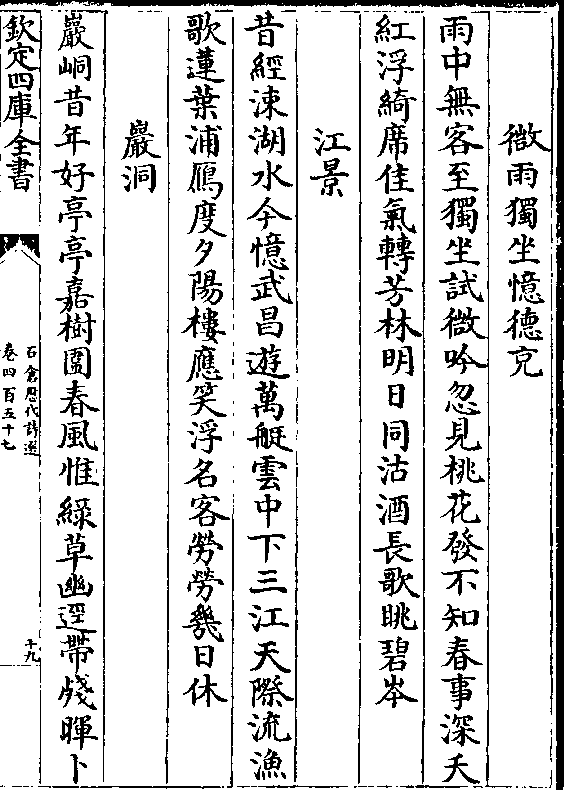 微雨獨坐憶德充
雨中無客至獨坐試微吟忽見桃花發不知春事深夭
紅浮綺席佳氣轉芳林明日同沽酒長歌眺碧岑
江景
昔經涑湖水今憶武昌遊萬艇雲中下三江天際流漁
歌蓮葉浦鴈度夕陽樓應笑浮名客勞勞幾日休
巖洞
巖峒昔年好亭亭嘉樹圍春風惟綠草幽逕帶殘暉卜
欽定四庫全書
石倉歷代詩選
卷四百五十七
十九